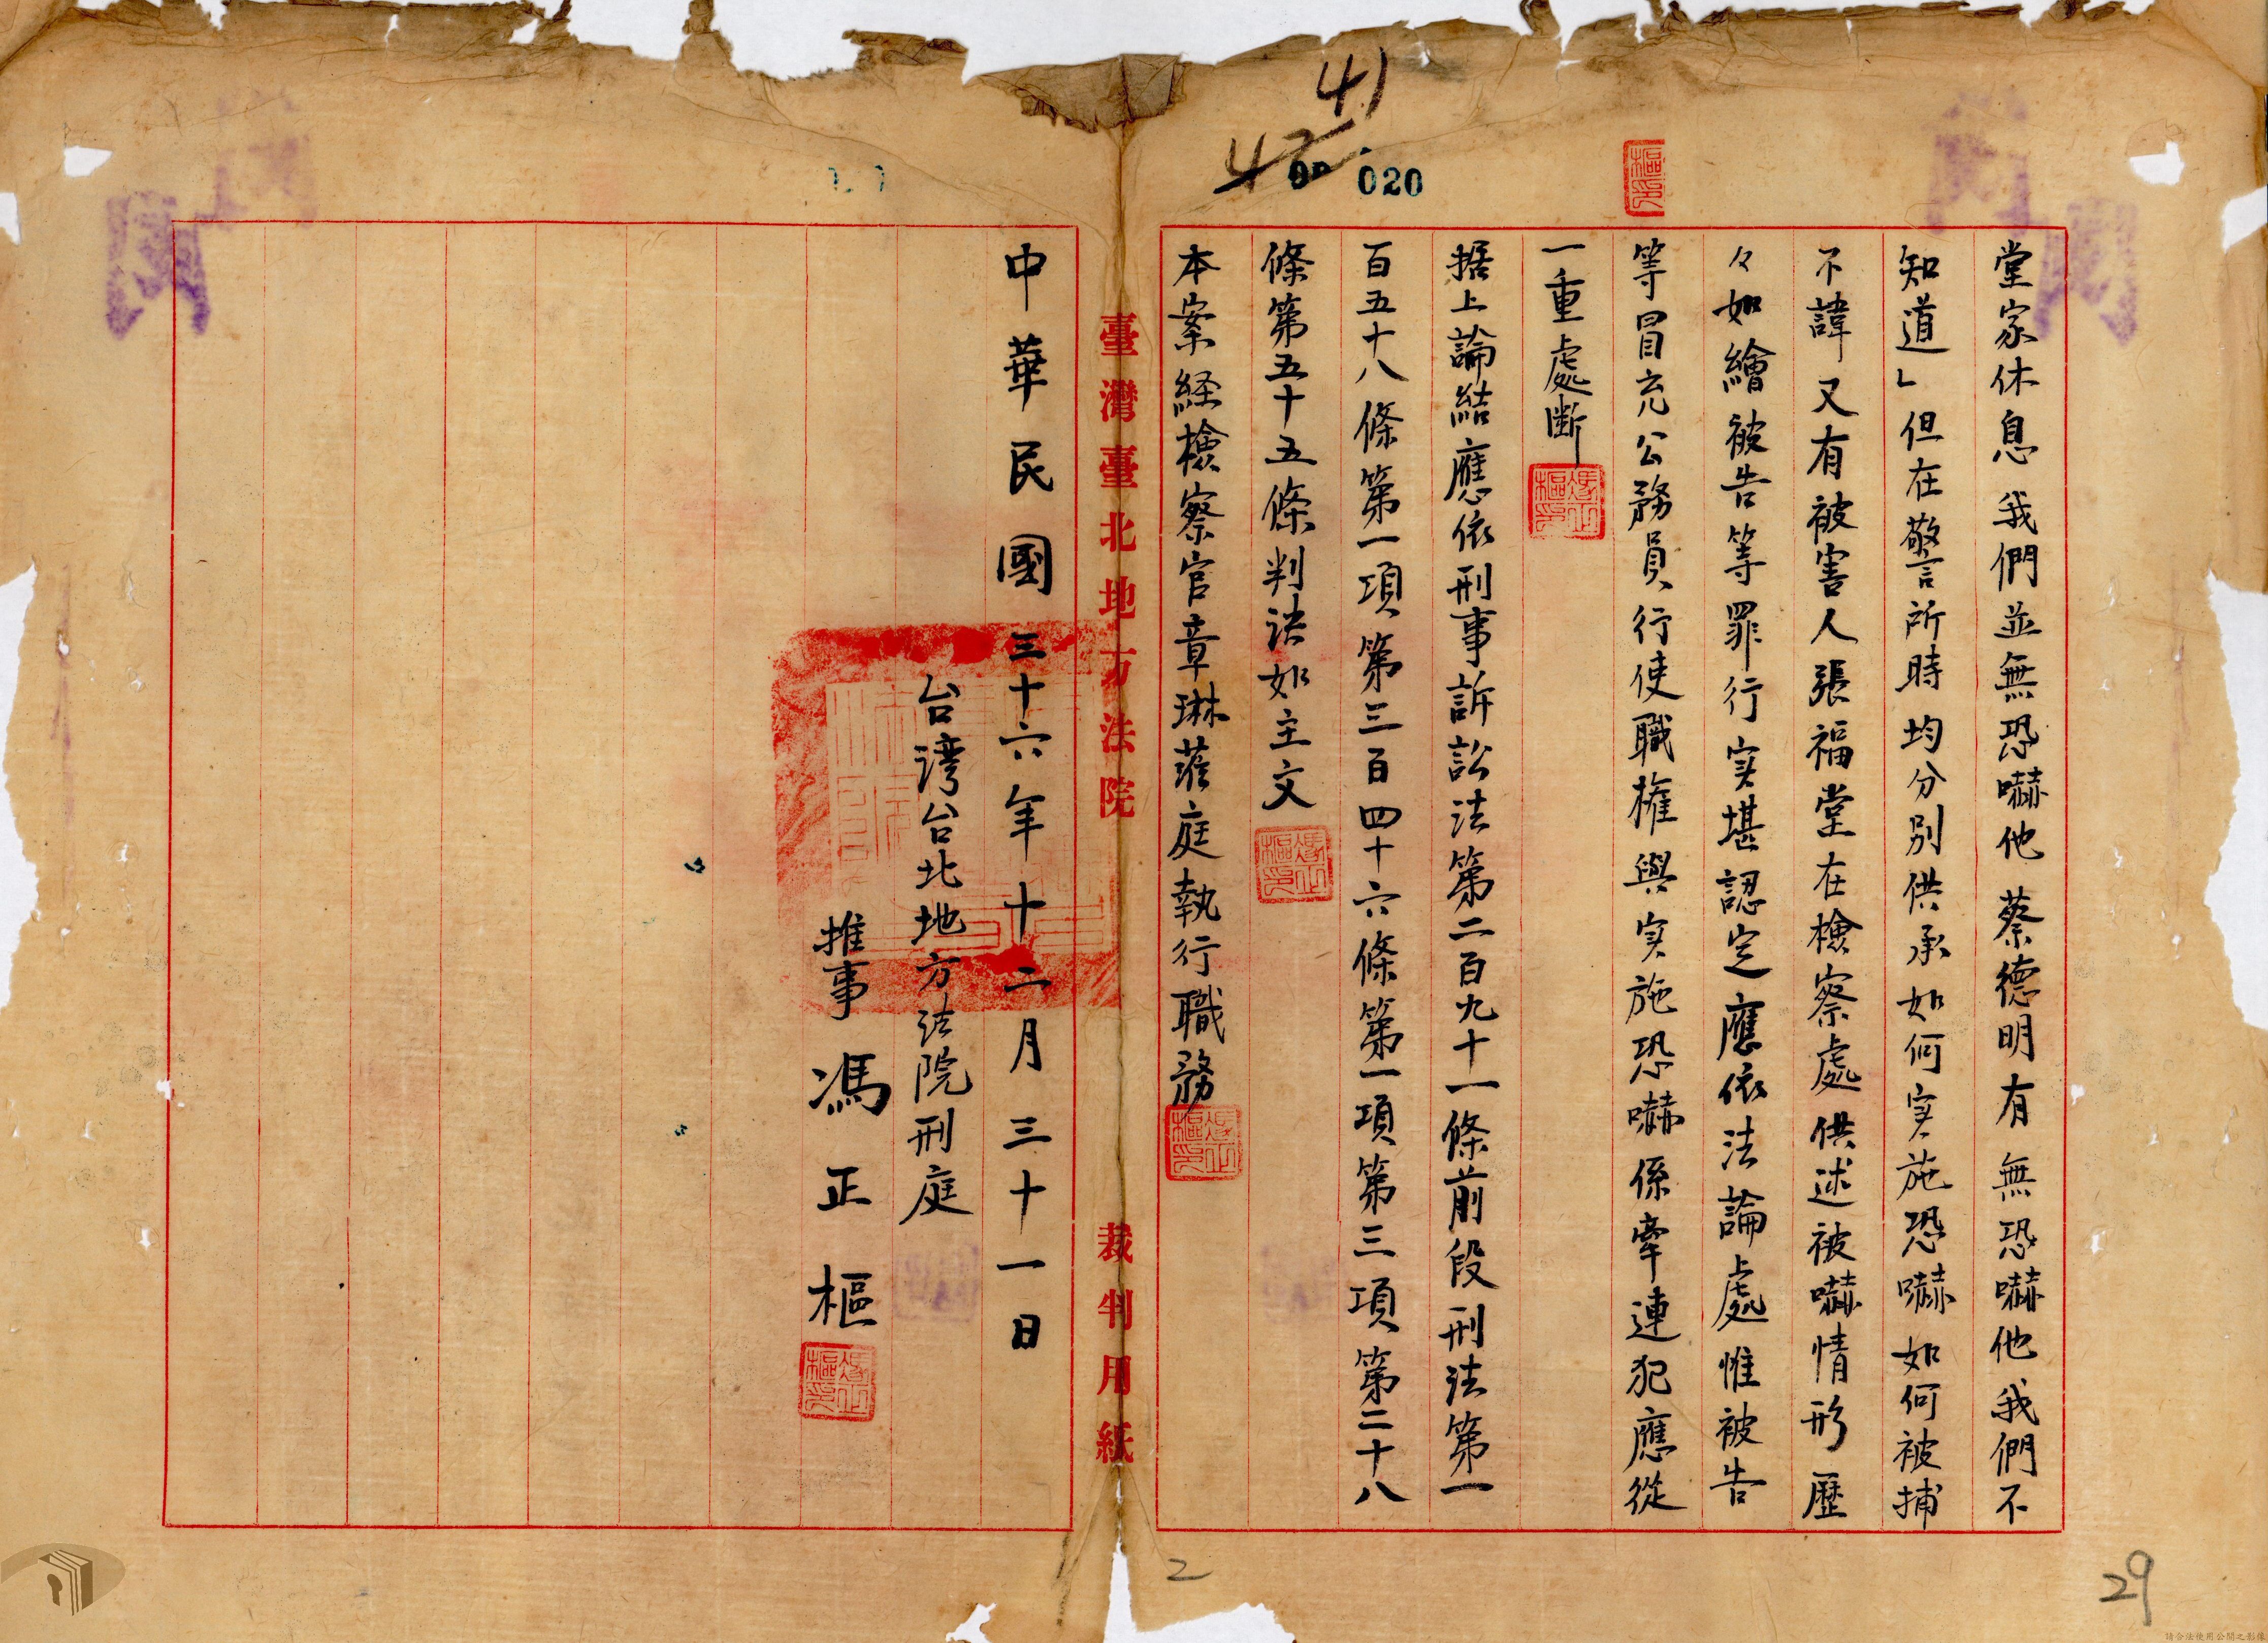 41
42
020
樞印
堂家休息我們並無恐嚇他蔡德明有無恐嚇他我們不
知道」但在警言所時均分別供承如何实施恐嚇如何被捕
不諱又有被害人張福堂在檢察處供述被嚇情形歷
々如繪被告等罪行实堪認定應依法論處惟被告
等冒充公務員行使職権與实施恐嚇係牽連犯應從
一重處断
据上論結應依刑事訴訟法第二百九十一條前段刑法第一
百五十八條第一項第三百四十六條第一項第三項第二十八
條第五十五條判決如主文
本案経檢察官章琳蒞庭執行職務
臺灣臺北地方法院 裁判用紙
中華民國三十六年十二月三十一日
台湾台北地方法院刑庭
推事 馮正樞
2
29
請合法使用公開之影像